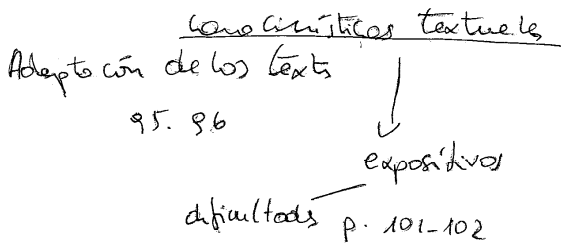 Características textuales
Adaptación de los texts
95. 96
expositivos
dificultades p. 101-102